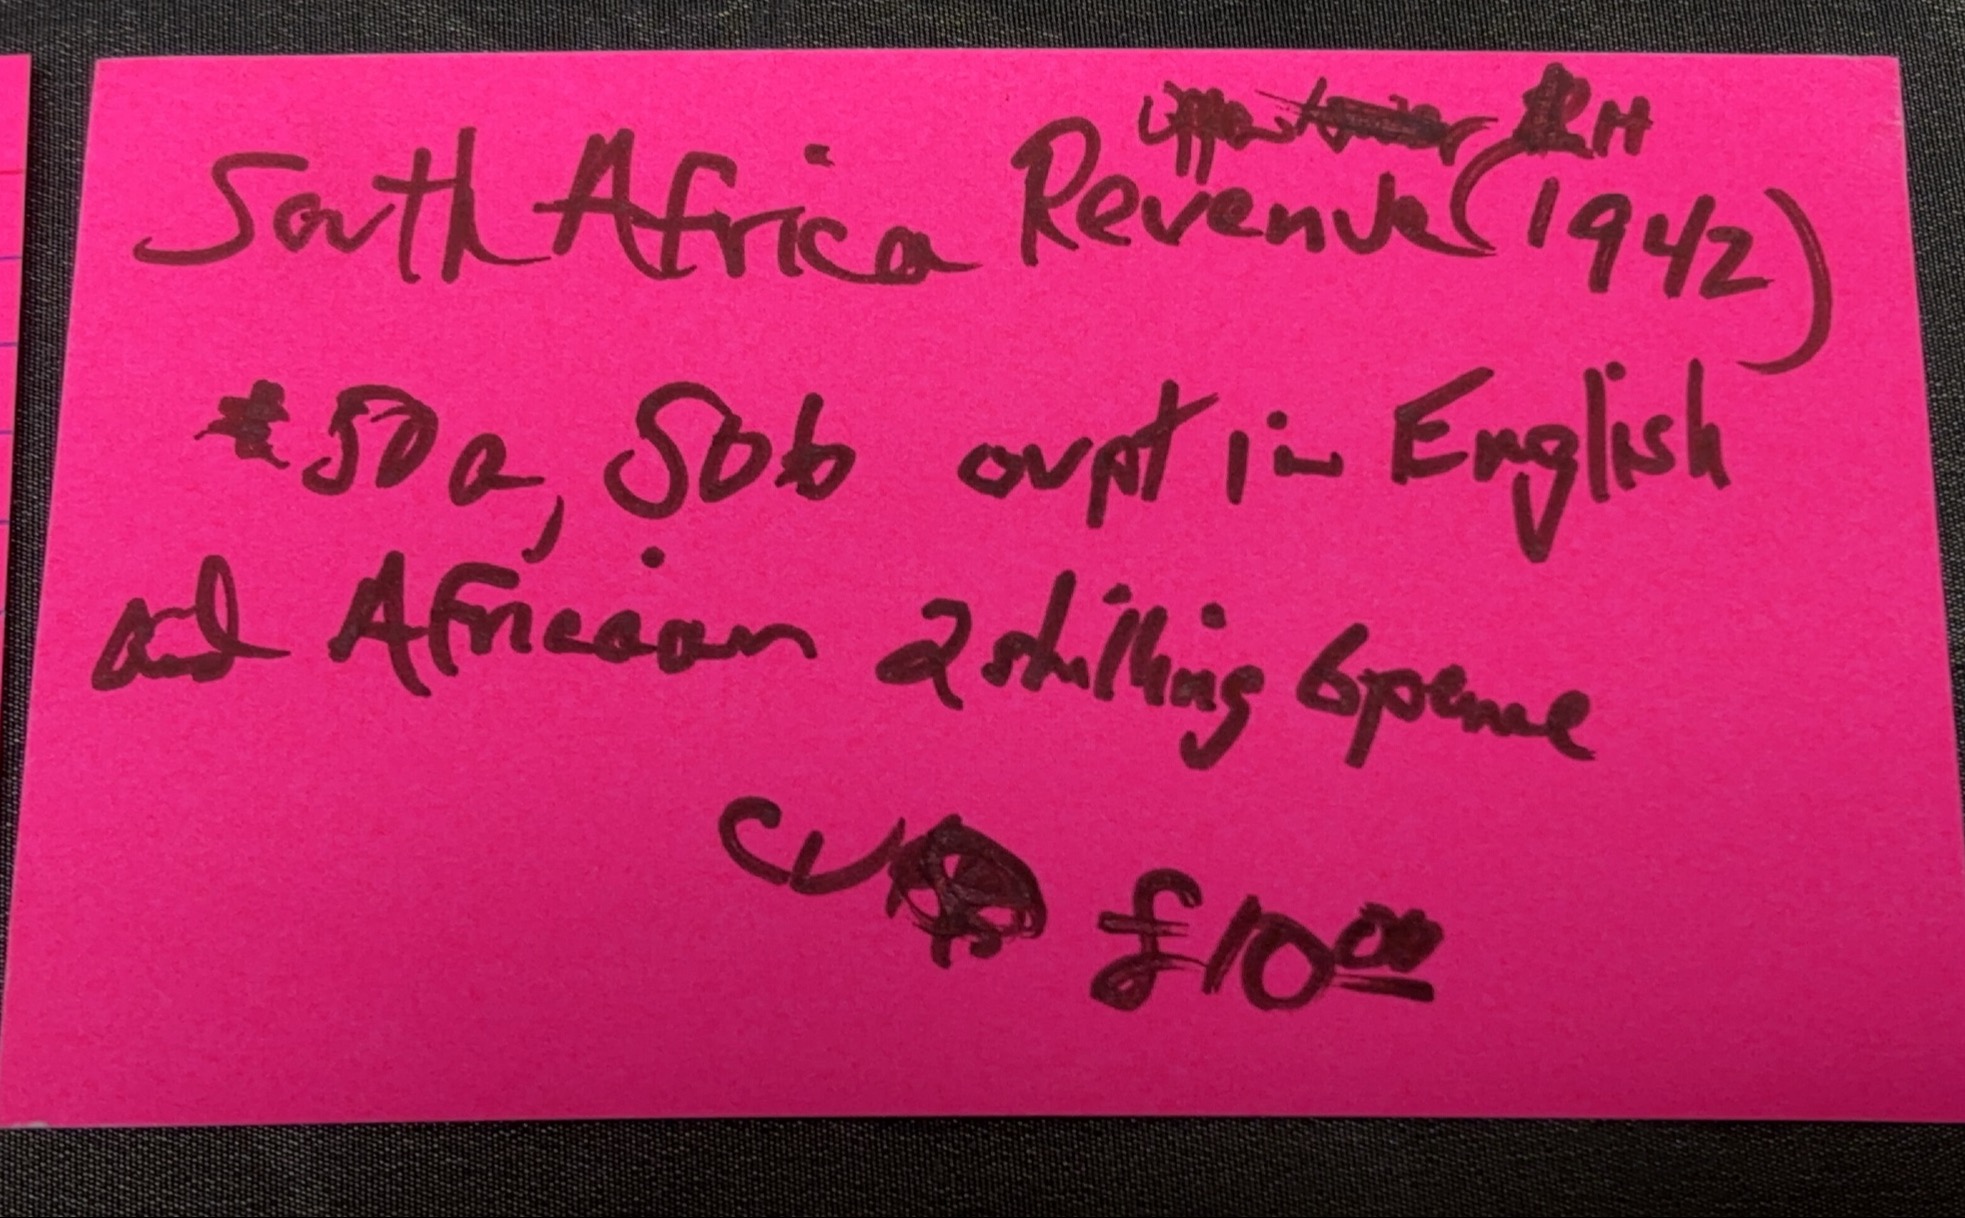 upper RH
South Africa Revenue (1942)
50a, 50b ovpt in English
and Africaan 2 shilling 6 pence
CV £10.00